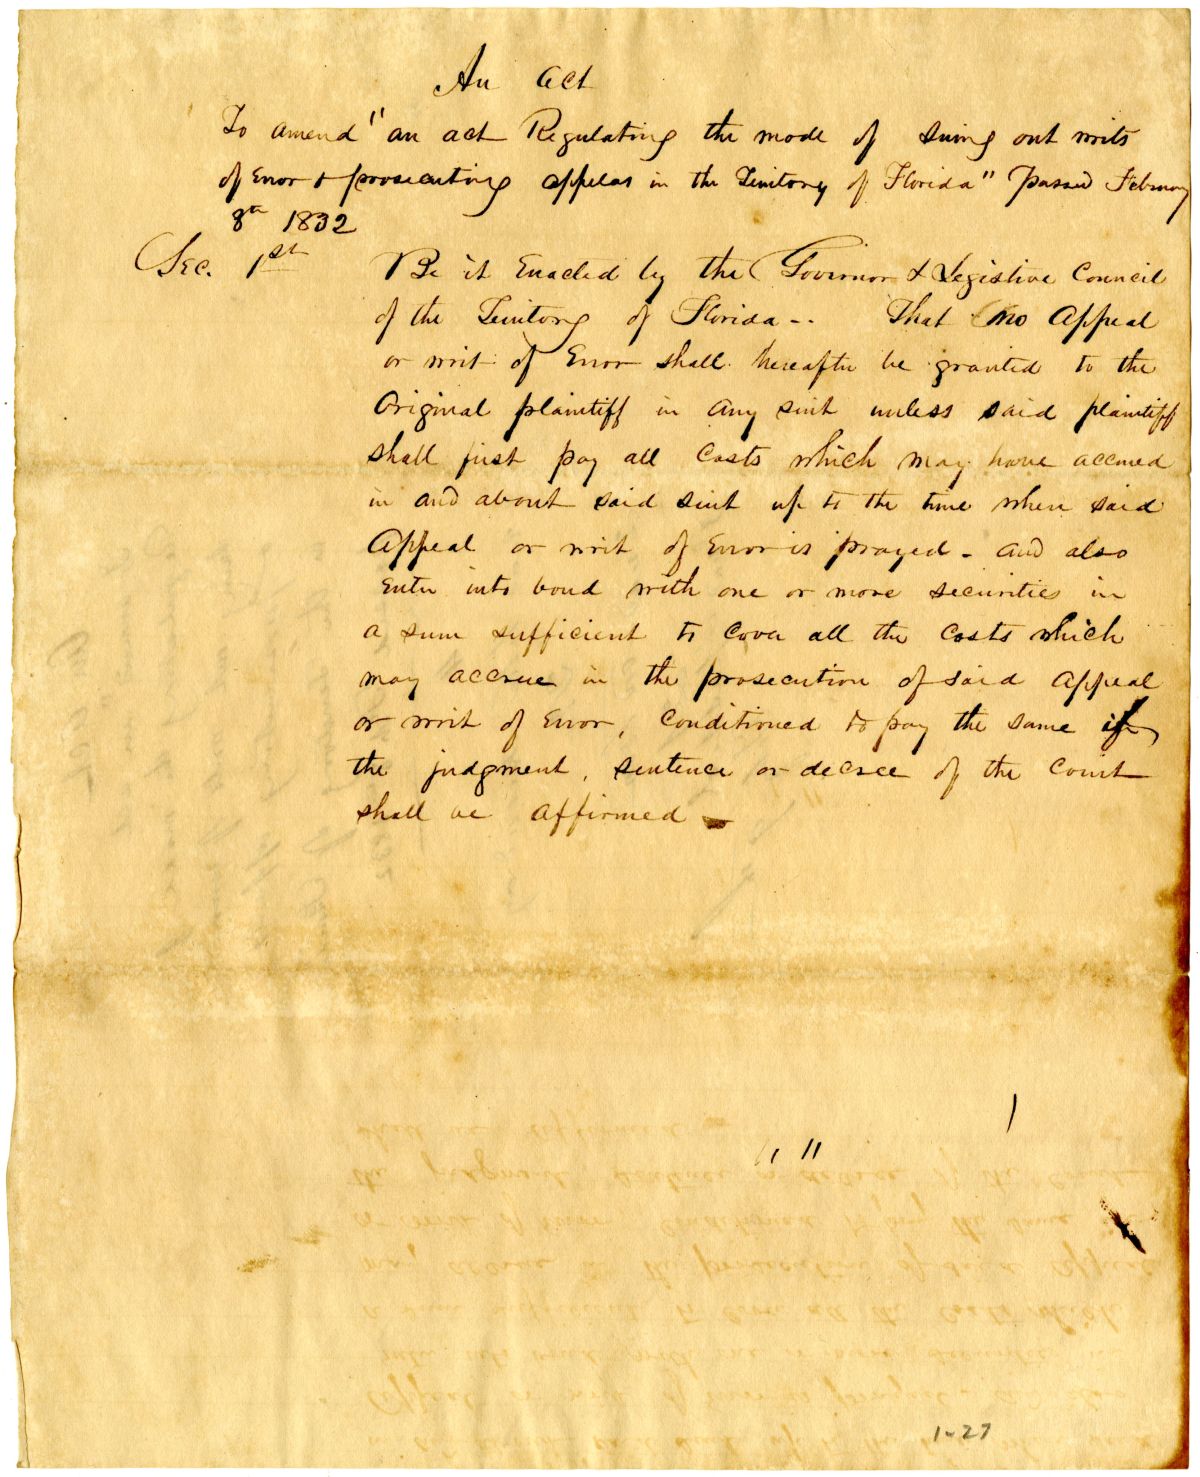 An Act
To amend "an act Regulating the mode of suing out writs
of Error & prosecuting appelas in the Territory of Florida" Passed February
8th 1832
Sec. 1st Be it Enacted by the Governor & Legistive Council
of the Territory of Florida -- That no Appeal
or writ of Error shall hereafter be granted to the
Original plaintiff in any suit unless said plaintiff
shall first pay all Costs which may have accrued
in and about said suit up to the time when said
Appeal or writ of Error is prayed - and also
enter into bond with one or more securities in
a sum sufficient to cover all the costs which
may accrue in the prosecution of said Appeal
or writ of Error, Conditioned to pay the same if
the judgment, sentence or decree of the Court
shall be affirmed -
1-27